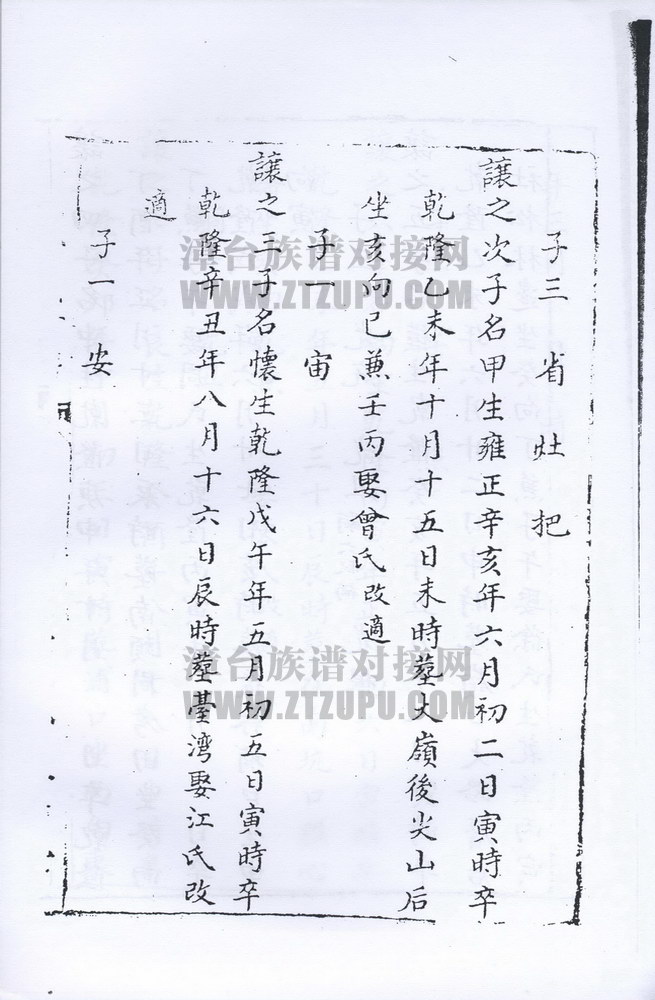 子三 省 灶 把
讓之次子名甲生雍正辛亥年六月初二日寅時卒
乾隆乙未年十月十五日未時塟大嶺後尖山后
坐亥向巳兼壬丙娶曾氏改適
子一 宙
讓之三子名懷生乾隆戊午年五月初五日寅時卒
乾隆辛丑年八月十六日辰時塟臺湾娶江氏改
適
子一 安
漳台族谱对接网
WWW.ZTZUPU.COM
漳台族谱对接网
WWW.ZTZUPU.COM